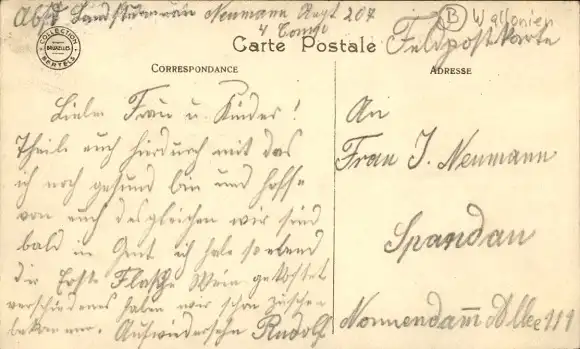 Abs. Landsturmmann Neumann Regt 207
4 Comp.
B Wallonien
COLLECTION
BRUXELLES
BERTELS
Carte Postale
Feldpostkarte
CORRESPONDANCE
ADRESSE
Liebe Frau u. Kinder!
Theile euch hierdurch mit das
ich noch gesund bin und hoffe
von euch desgleichen wir sind
bald in Gent ich habe soebend
die Erste Flasche Wein gekostet
verschiedenes haben wir schon zu sehen
bekommen. Aufwiedersehn Rudolf
An
Frau J. Neumann
Spandau
Nonnendam̄ Allee 111